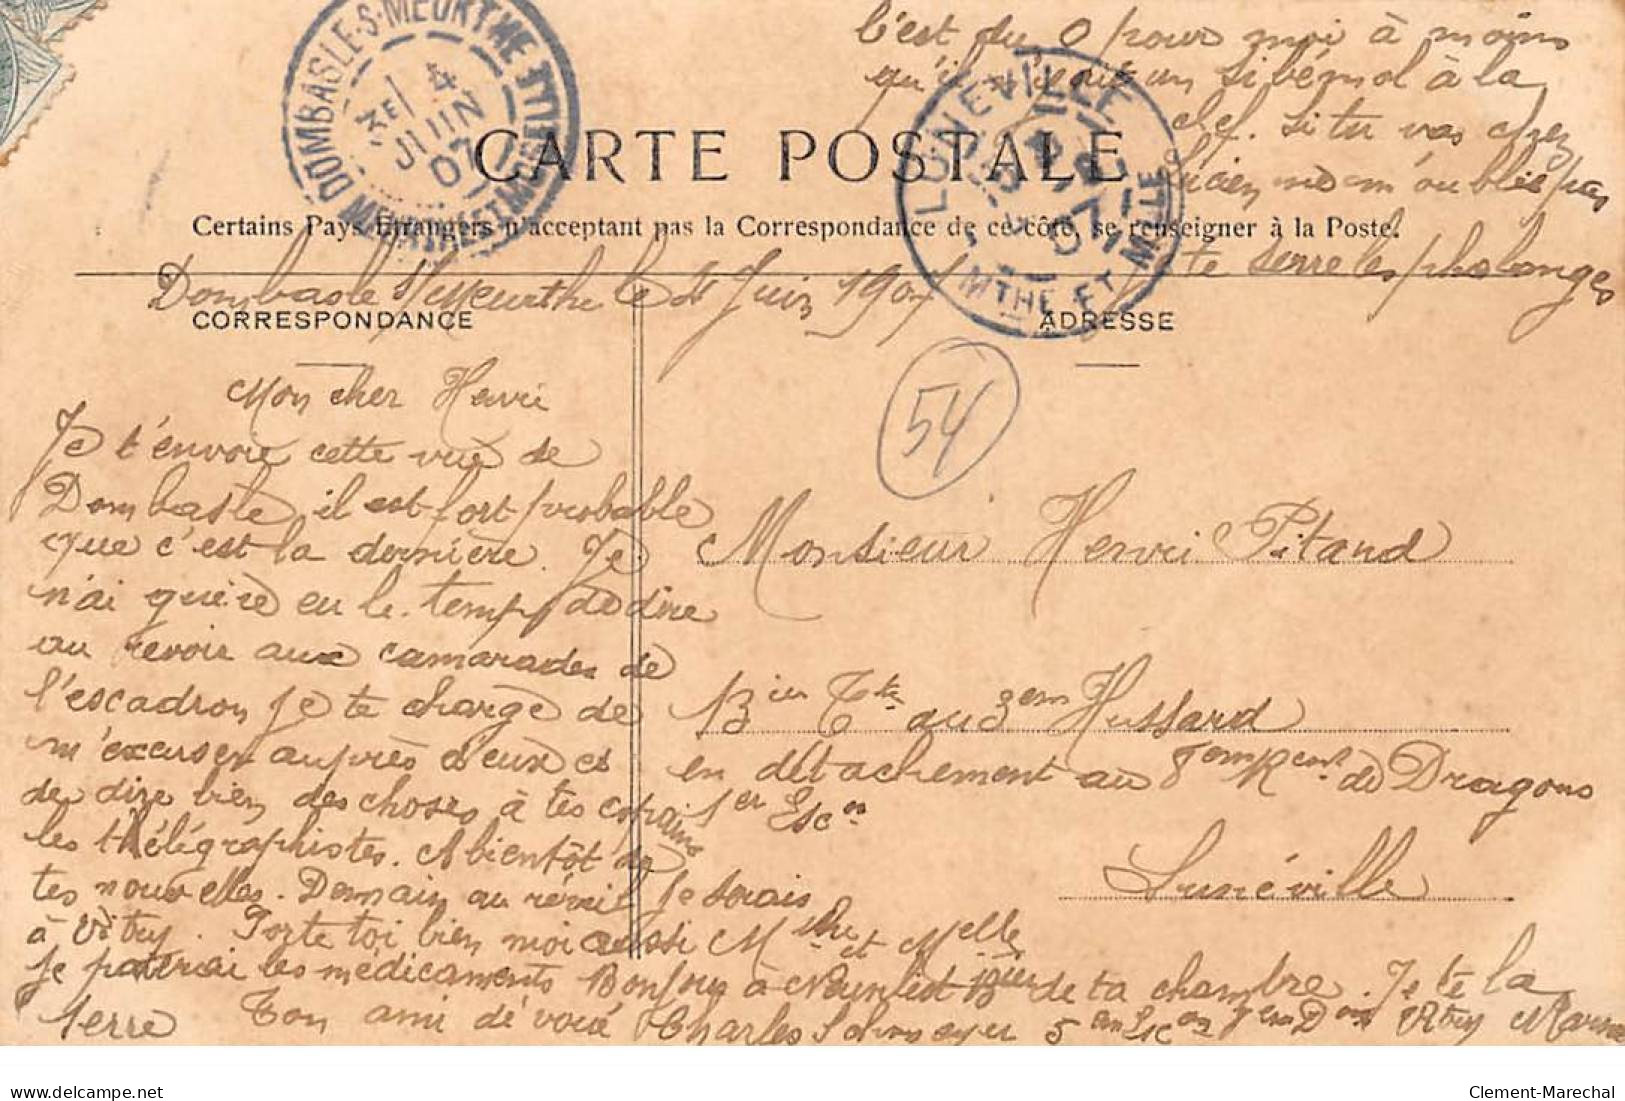 c'est du 0 pour moi à moins
qu'il un si bémol à la
clef. Si tu vas chez
m'oublie pas
te serre les phalanges
DOMBASLE-S-MEURTHE
3E 4
JUIN
07
MEURTHE ET MOSELLE
LUNEVILLE
07
MTHE ET MLLE
CARTE POSTALE
Certains Pays Etrangers n'acceptant pas la Correspondance de ce côté, se renseigner à la Poste.
Dombasle s/Meurthe le 4 Juin 1907
CORRESPONDANCE
ADRESSE
54
Mon cher Henri
Je t'envoie cette vue de
Dombasle, il est fort probable
que c'est la dernière. Je
n'ai guère eu le temps de dire
au revoir aux camarades de
l'escadron je te charge de
m'excuser auprès d'eux et
de dire bien des choses à tes copains
les thélégraphistes. A bientôt de
tes nouvelles. Demain au réveil je serais
à Vitry. Porte toi bien moi aussi
je patirai les médicaments Bonjour à de ta chambre. Je te la
serre Ton ami dévoué Charles
Monsieur Henri Pitand
au 3em Hussard
en détachement au 8em Rent de Dragons
1er Escon
Lunéville
Clement-Marechal
delcampe.net